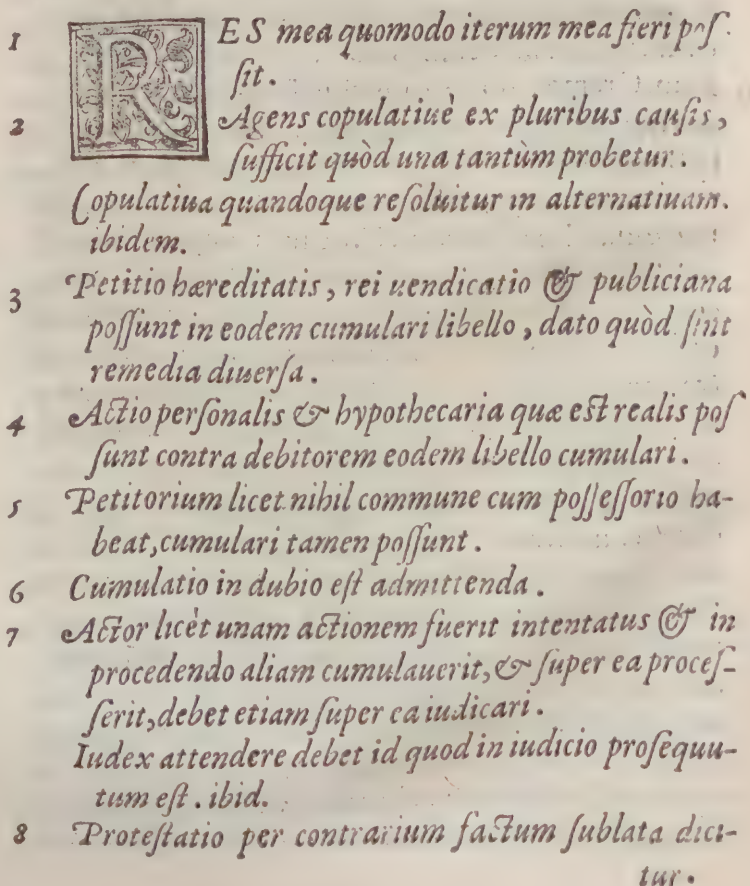 1 RES mea quomodo iterum mea fieri poſ
ſit.
2 Agens copulatiuè ex pluribus cauſis,
ſufficit quòd una tantùm probetur.
Copulatiua quandoque reſoluitur in alternatiuam.
ibidem.
3 Petitio hæreditatis, rei uendicatio & publiciana
poſſunt in eodem cumulari libello, dato quòd ſint
remedia diuerſa.
4 Actio perſonalis & hypothecaria quæ eſt realis poſ
ſunt contra debitorem eodem libello cumulari.
5 Petitorium licet nihil commune cum poſſeſſorio ha-
beat, cumulari tamen poſſunt.
6 Cumulatio in dubio eſt admittenda.
7 Actor licèt unam actionem fuerit intentatus & in
procedendo aliam cumulauerit, & ſuper ea proceſ-
ſerit, debet etiam ſuper ea iudicari.
Iudex attendere debet id quod in iudicio proſequu-
tum eſt. ibid.
8 Proteſtatio per contrarium factum ſublata dici-
tur.